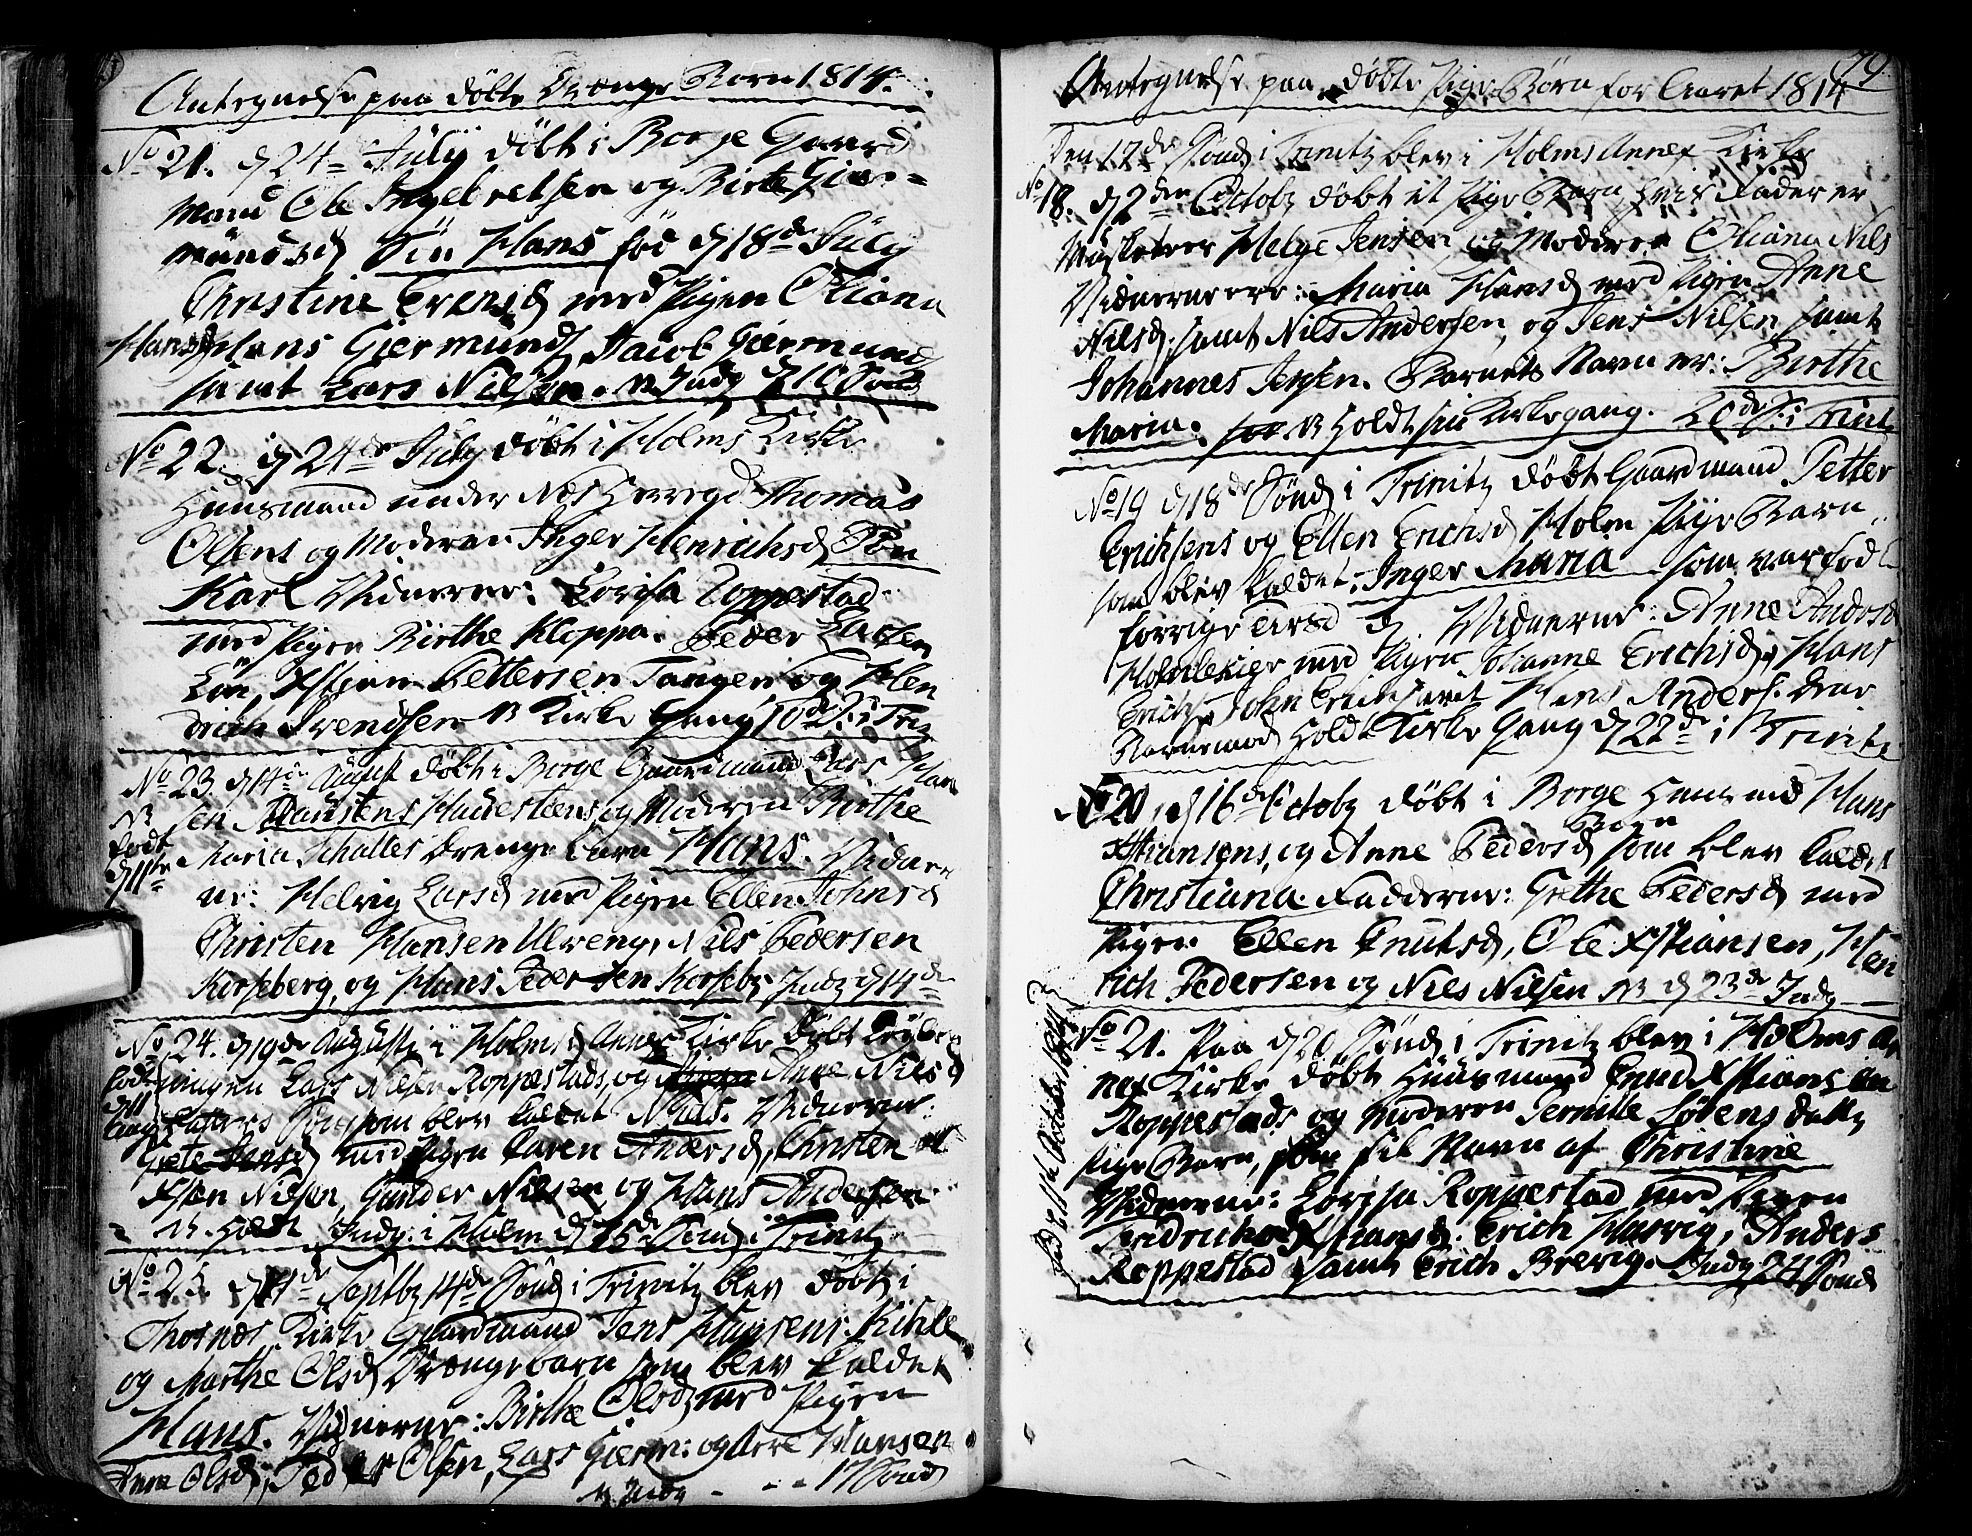 Antegnelse paa döbte Drænge Börn 1814.
No 21. d 24 July döbt i Borge Gaard
mand Ole Ingebretsen og Birte Gier=
mundsd Sön Hans föd d 18de July
Christine Evensd med Pigen Oliana
Hansd Hans Giermunds, Jacob Giermunds
samt Lars Nilsen. NB Indg d 10 Sönd
No 22. d 24de July döbt i Holms Kirke
Huusmand under Næs Herregd Thomas
Olsens og Moderen Inger Henrichsd Sön
Karl Vidnerne: Lovisa Roppestad
med Pigen Birthe Kloppa. Peder Larsen
Lön, Xstian Pettersen Tangen og Hen
drich Svendsen NB Kirke Gang 10de S. i Trin
No 23. d 14de August döbt i Borge Gaardmand Lars Han
sen og Moderen Birthe
NB
födt
d 11te
Maria Schalles Drenge Barn Hans. Vidner
ne: Helvig Larsd med Pigen Ellen Johnsd
Christen Hansen Ulveng, Nils Pedersen
Korseberg, og Hans Pedersen Korseb. Indg d 14de
No 24. d 9de Augusti i Holms Annex Kirke döbt
Lars Nilsen Roppestads og Anne Nilsd
födt
d 11
Sön som blev kaldet Niels. Vidnerne:
Grete Jensd med Pigen Karen Andersd, Christen
Nilsen, Gunder Nilsen og Hans Andersen
NB. Holdt Indg. i Holm d 15de Sönd i Trinit
No 25. d Septbr 14de Sönd i Trinit blev döbt i
Thosnæs Kirke Gaardmand Jens Hansens Kihle
og Marthe Olsd Drængebarn som blev kaldet
Hans. Vidnerne: Birthe Olsd med Pigen
Anne Olsd, Peder Olsen, Lars Gierm: og Arve Hansen
NB Indg - - - 17 Sönd
79
Antegnelse paa döbte Pige Börn for Aaret 1814
Den 17de Sönd i Trinit blev i Holms Annex Kirke
No 18. d 2den Octob döbt et Pige Barn hvis Fader er
Musketeer Helge Jensen og Moderen Oliana Nils
Vidnerne ere: Maria Hansd med Pigen Anne
Nilsd, samt Nils Andersen, og Jens Nilsen samt
Johannes Jensen. Barnets Navn er: Birthe
Maria. NB holdt sin Kirkegang. 20de S. i Trinit
No 19 d 18de Sönd i Trinit döbt Gaardmand Petter
Eriksens og Ellen Erichsd Holm Pige Barn
som blev kaldet: Inger Maria som var föd
forrige Vidnerne: Anne Andersd
med Pigen Johanne Erichsd, Hans
Erichs. John samt Hans Anders.
Barnemod holdt Kirke Gang d 22de i Trinit
No 20, d 16de Octob döbt i Borge Huusmd Hans
Xstiansens, og Anne Pedersd Barn som blev kaldet
Christiana Fadderne: Grethe Pedersd med
Pigen Ellen Knutsd, Ole Xstiansen, Hen
rich Pedersen og Niels Nilsen NB d 23de Indg
No 21. Paa d 20 Sönd i Trinit blev i Holms An
nex Kirke döbt Huusmand Knud Xstiansen
Roppestads og Moderen Pernille Sörens datte
Pige Barn, som fik Navn af Christine
Vidnerne: Lovisa Roppestad med Pigen
Fredriche Xstiansd. Erich Harvig, Anders
Roppestad samt Erich Brevig. Indg 24 Sönd